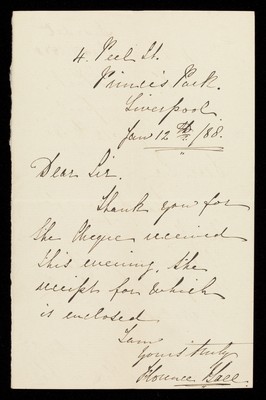 4. Peel St.
Princes Park.
Liverpool
Jan 12th /88.
Dear Sir.
Thank you for
the Cheque received
this evening, the
receipt for which
is enclosed
I am
yours truly
Florence Hall